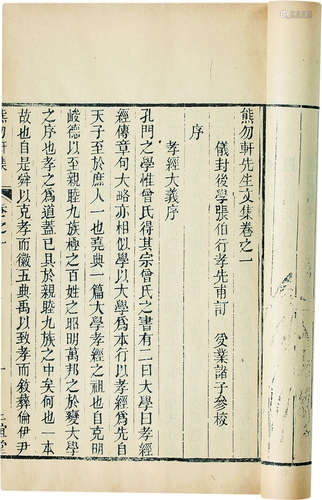 熊勿軒先生文集卷之一
儀封後學張伯行孝先甫訂 受業諸子參校
序
孝經大義序
孔門之學惟曾氏得其宗曾氏之書有二曰大學曰孝經
經傳章句大略亦相似學以大學為本行以孝經為先自
天子至於庶人一也堯典一篇大學孝經之祖也自克明
峻德以至親睦九族極之百姓之昭明萬邦之於變大學
之序也孝之為道蓋已具於親睦九族之中矣何也一本
故也自是舜以克孝而徽五典禹以致孝而敘彝倫伊尹
熊勿軒集 卷之一 一 正誼堂